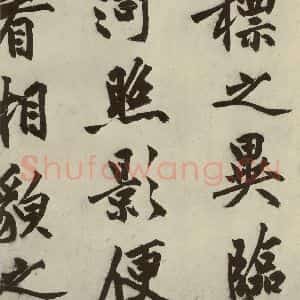 標之異臨
河照影便
看相貌之
Shufawang.Cn